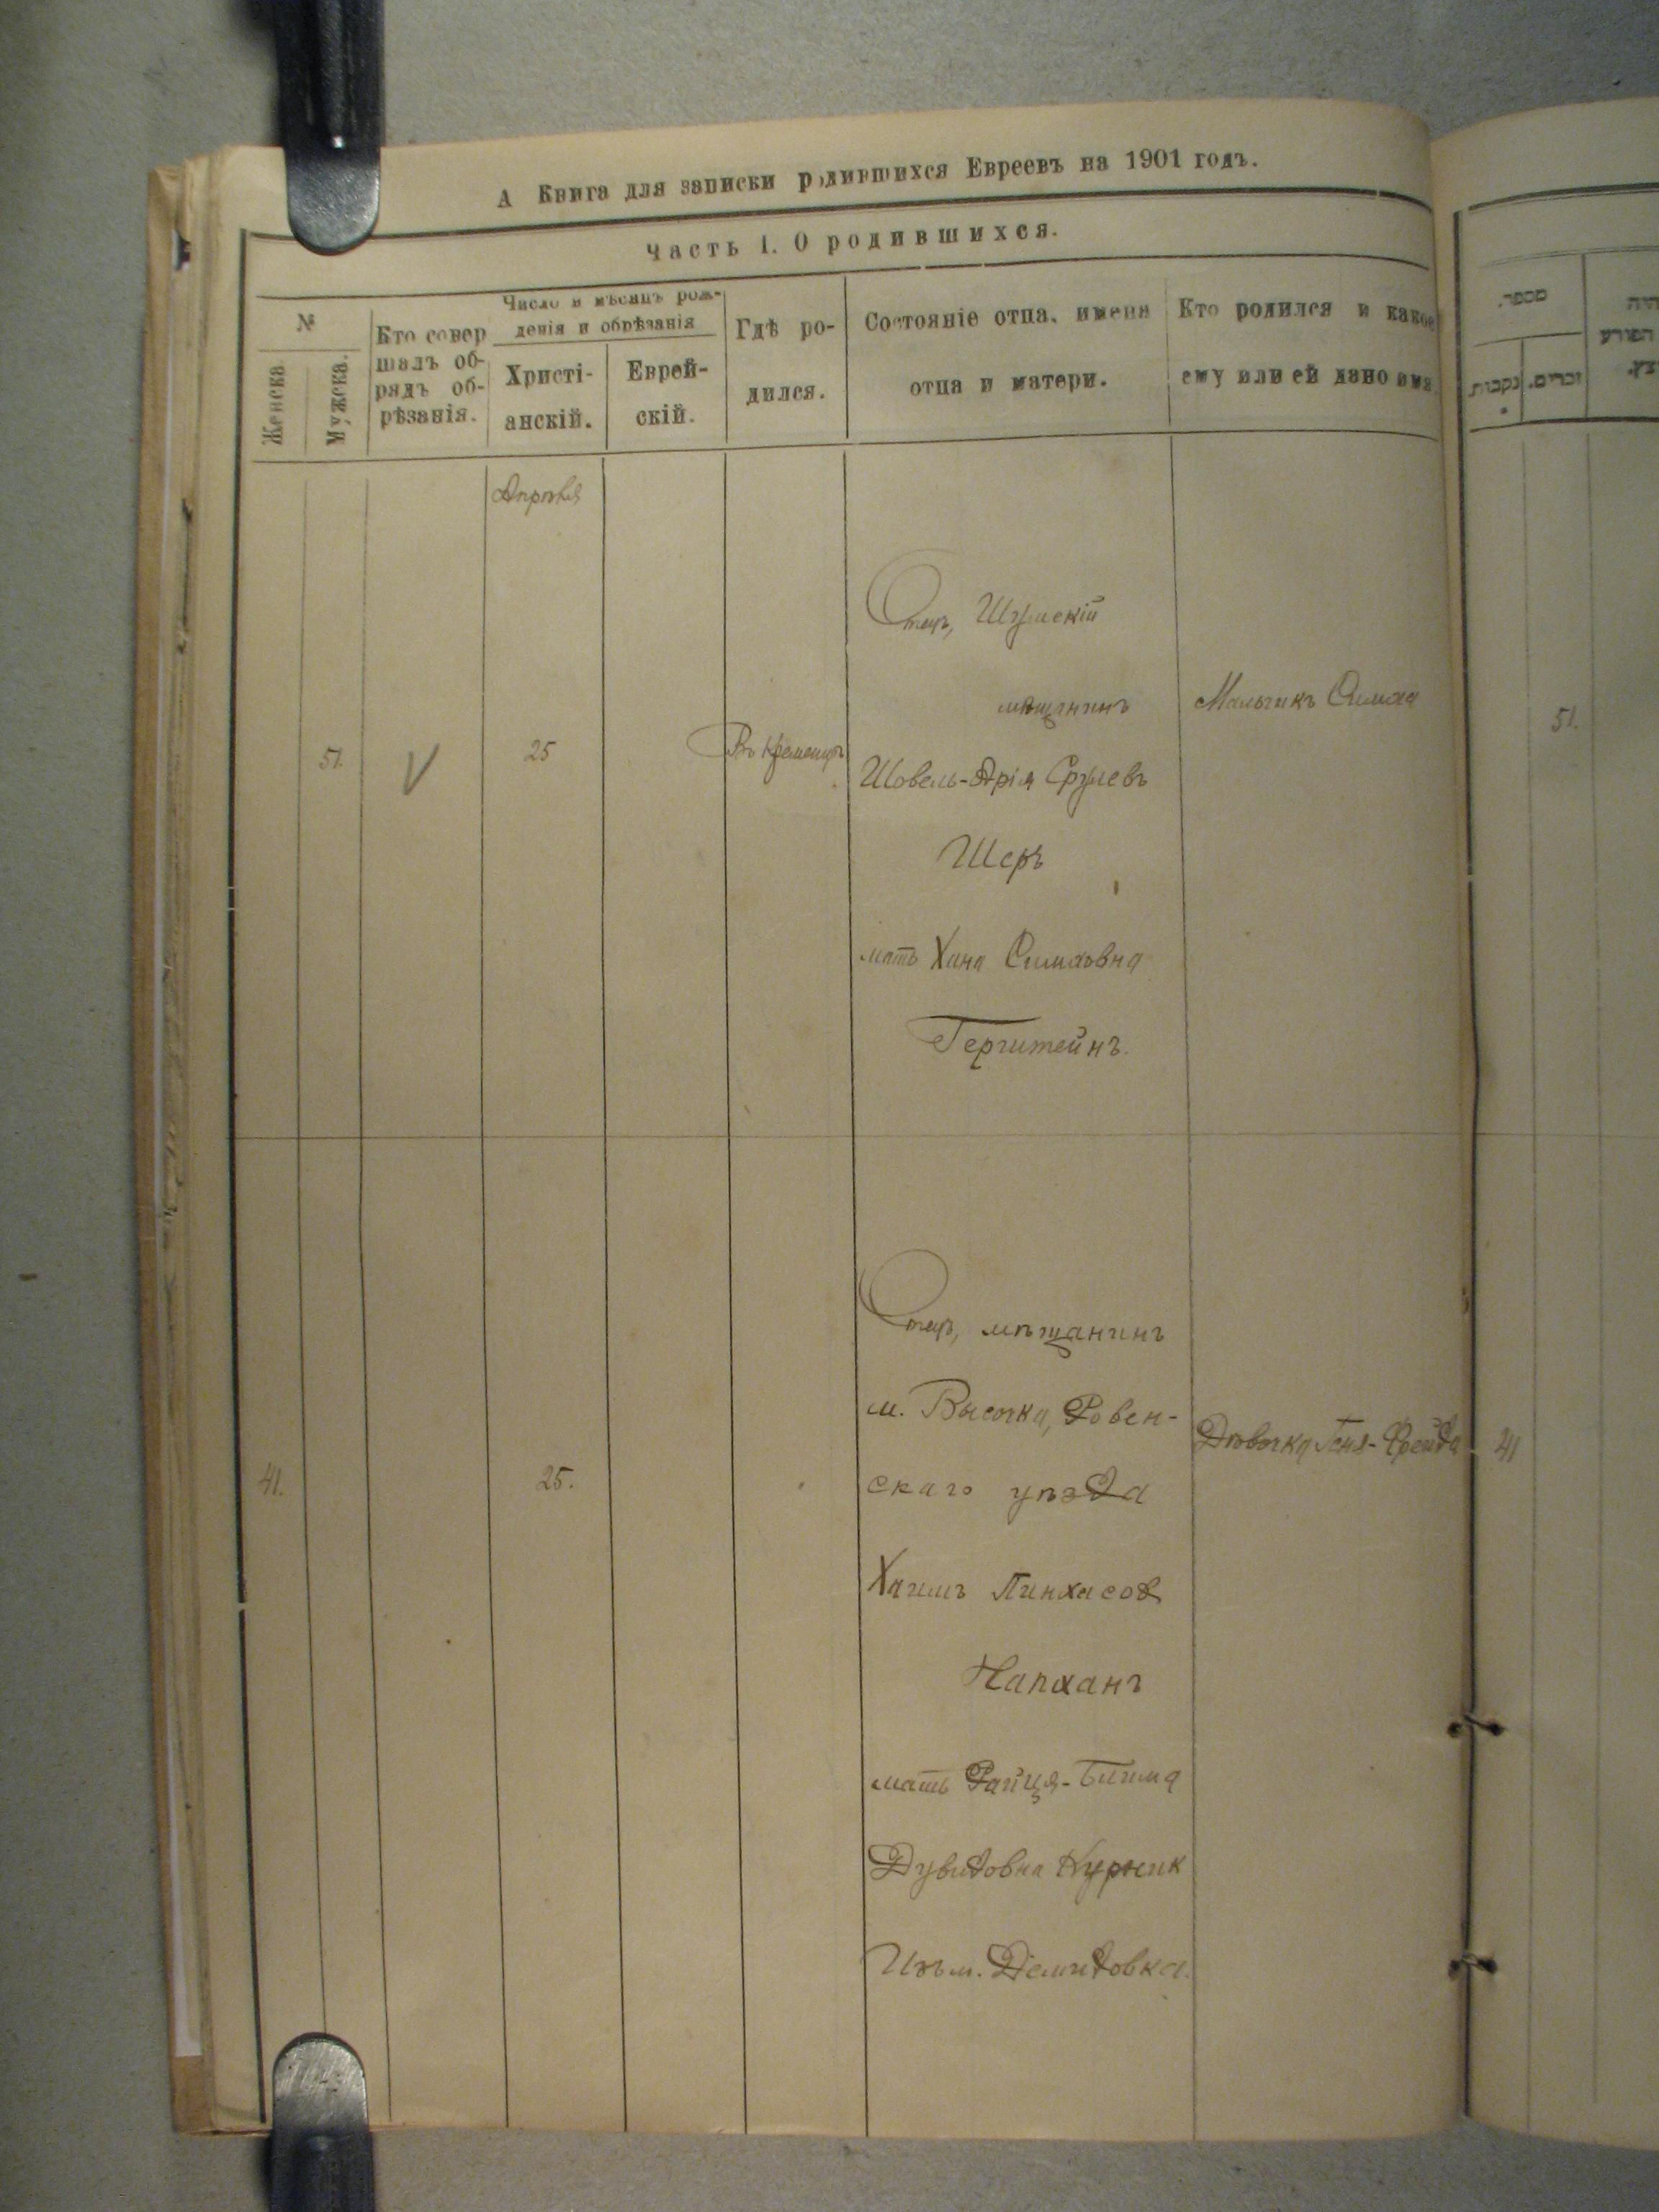 А Книга для записки родившихся Евреевъ на 1901 годъ.
Часть I. О родившихся.
№
Женска
Мужеска.
Кто совер
шалъ об-
рядъ об-
рѣзанія.
Число и мѣсяцъ рож-
денія и обрѣзанія
Христі-
анскій.
Еврей-
скій.
Гдѣ ро-
дился.
Состояніе отца, имена
отца и матери.
Кто родился и какое
ему или ей дано имя
מספר.
נקבות
זכרים.
Апрѣля
51.
V
25
Въ Кременцѣ
Отецъ, Шумскій
мѣщанинъ
Шовель-Арія Срулевъ
Шеръ
мать Хана Симховна
Герштейнъ.
Мальчикъ Симха
51.
41.
25.
Отецъ, мѣщанинъ
м. Высочка, Ровен-
скаго уѣзда
Хаимъ Пинхасов
Напханъ
мать Райця-Битма
Дувидовна Курник
Изъ м. Демидовка.
Дѣвочка Геня-Фрейда
41